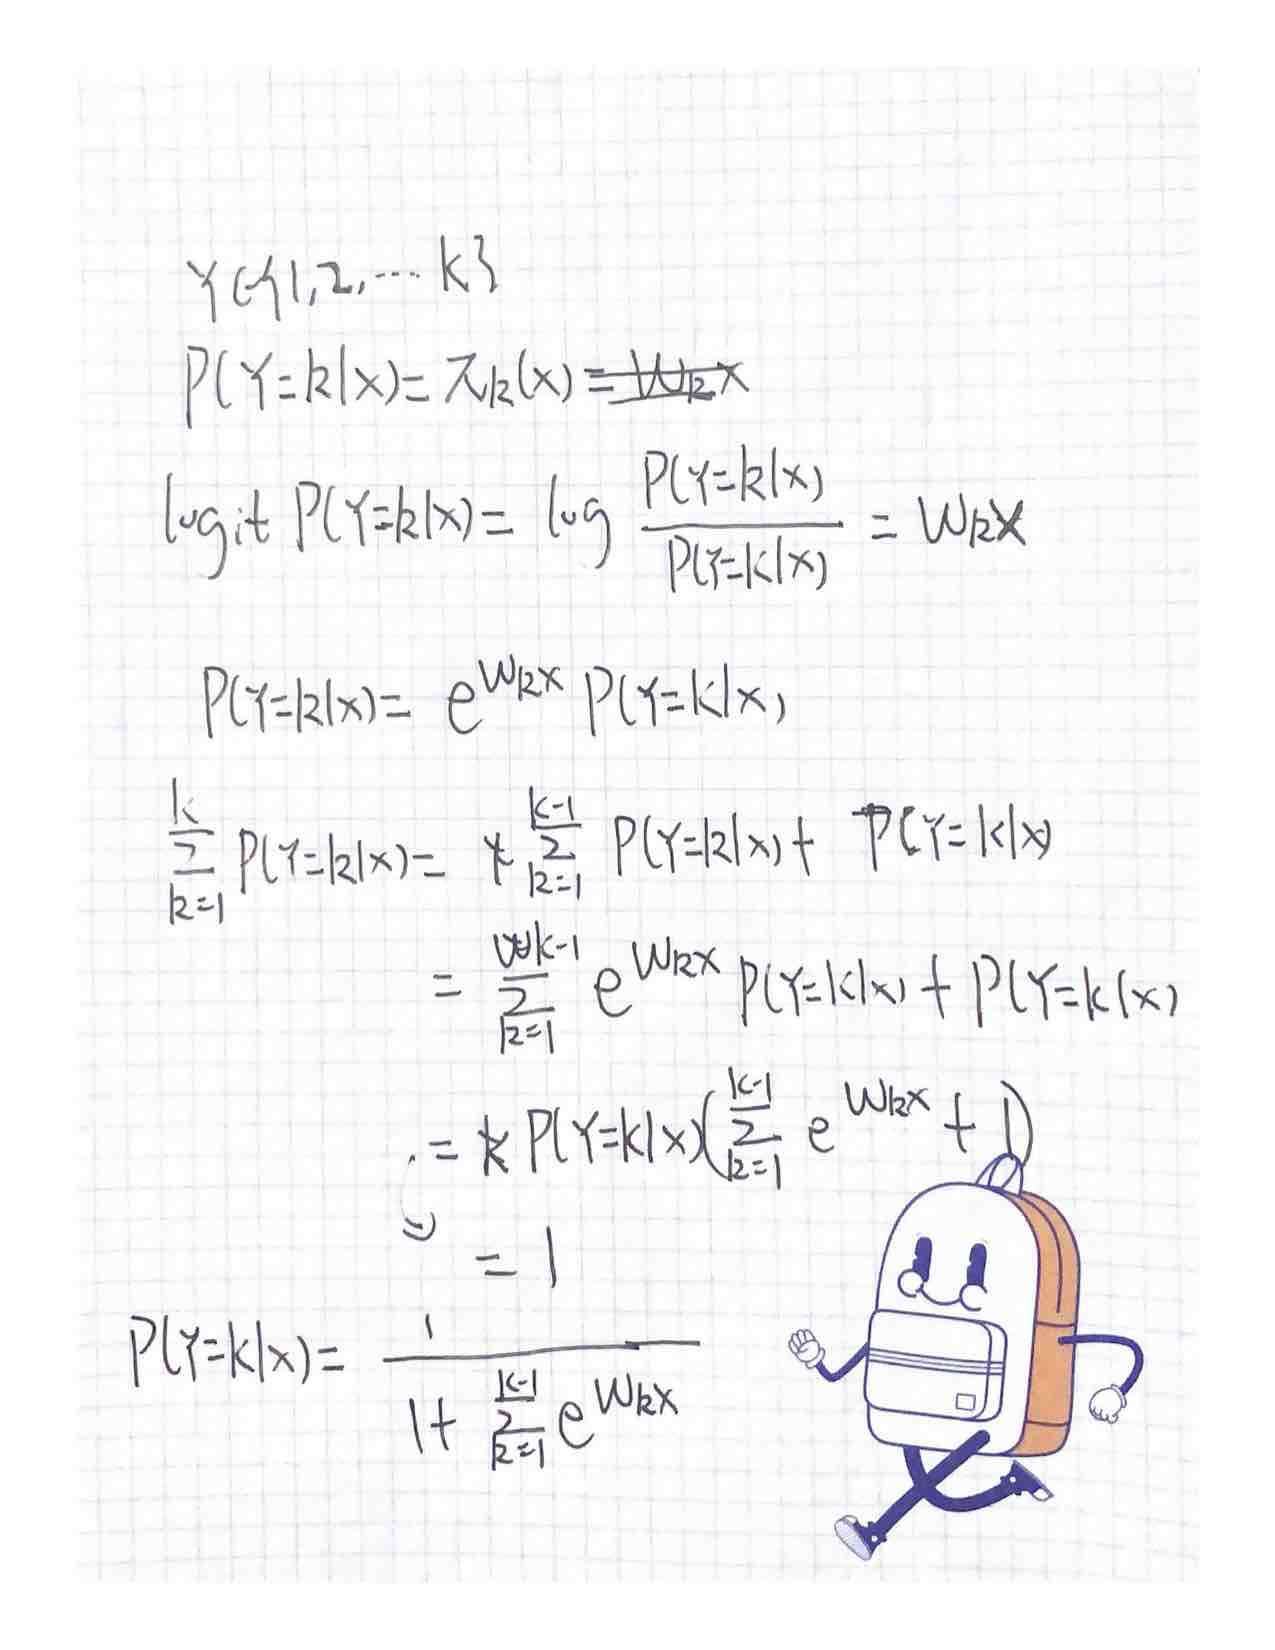 Y∈{1,2,⋯ K}
P(Y=k|x)= π_k(x) = W_k x
logit P(Y=k|x)= log P(Y=k|x) / P(Y=K|x) = W_k x
P(Y=k|x)= e^{W_k x} P(Y=K|x)
∑_{k=1}^{K} P(Y=k|x)= ∑_{k=1}^{K-1} P(Y=k|x)+ P(Y=K|x)
= ∑_{k=1}^{K-1} e^{W_k x} P(Y=K|x)+ P(Y=K|x)
= P(Y=K|x)(∑_{k=1}^{K-1} e^{W_k x} + 1)
= 1
P(Y=K|x)= 1 / 1+ ∑_{k=1}^{K-1} e^{W_k x}